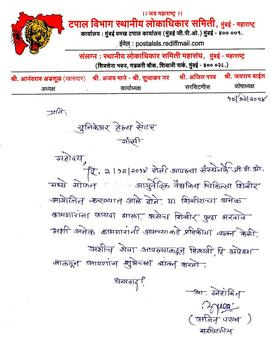 ।। जय महाराष्ट्र ।।
टपाल विभाग स्थानीय लोकाधिकार समिती, मुंबई - महाराष्ट्र
कार्यालय : मुंबई प्रमुख टपाल कार्यालय (मुंबई जी.पी.ओ.) मुंबई - ४०० ००१.
ईमेल : postalsls.rediffmail.com
संलग्न : स्थानीय लोकाधिकार समिती महासंघ, मुंबई - महाराष्ट्र
(शिवसेना भवन, गडकरी चौक, शिवाजी पार्क, मुंबई - ४०० ०२८.)
श्री. आनंदराव अडसूळ (खासदार) श्री. अजय माने - श्री. सुधाकर नर श्री. अजित परब श्री. जयराम बाईत
अध्यक्ष कार्याध्यक्ष सरचिटणीस कोषाध्यक्ष
प्रति,
युनिकेअर हेल्थ सेंटर
वाशी
महोदय,
दि. रोजी आपल्या संस्थेतर्फे जी.पी.ओ.
मध्ये मोफत आयुर्वेदिक वैद्यकिय चिकित्सा शिबीर
आयोजित करण्यात आले होते. या शिबीराचा अनेक
कामगारांना फायदा झाला. तसेच शिबीर पुन्हा भरवावे
अशी अनेक कामगारांनी आमच्याकडे प्रतिक्रिया व्यक्त केली.
अशीच सेवा आपल्याकडून मिळावी हि अपेक्षा
बाळगून आपणांस शुभेच्छा व्यक्त करतो.
धन्यवाद!
आ. स्नेहांकित
(अजित परब)
सरचिटणीस